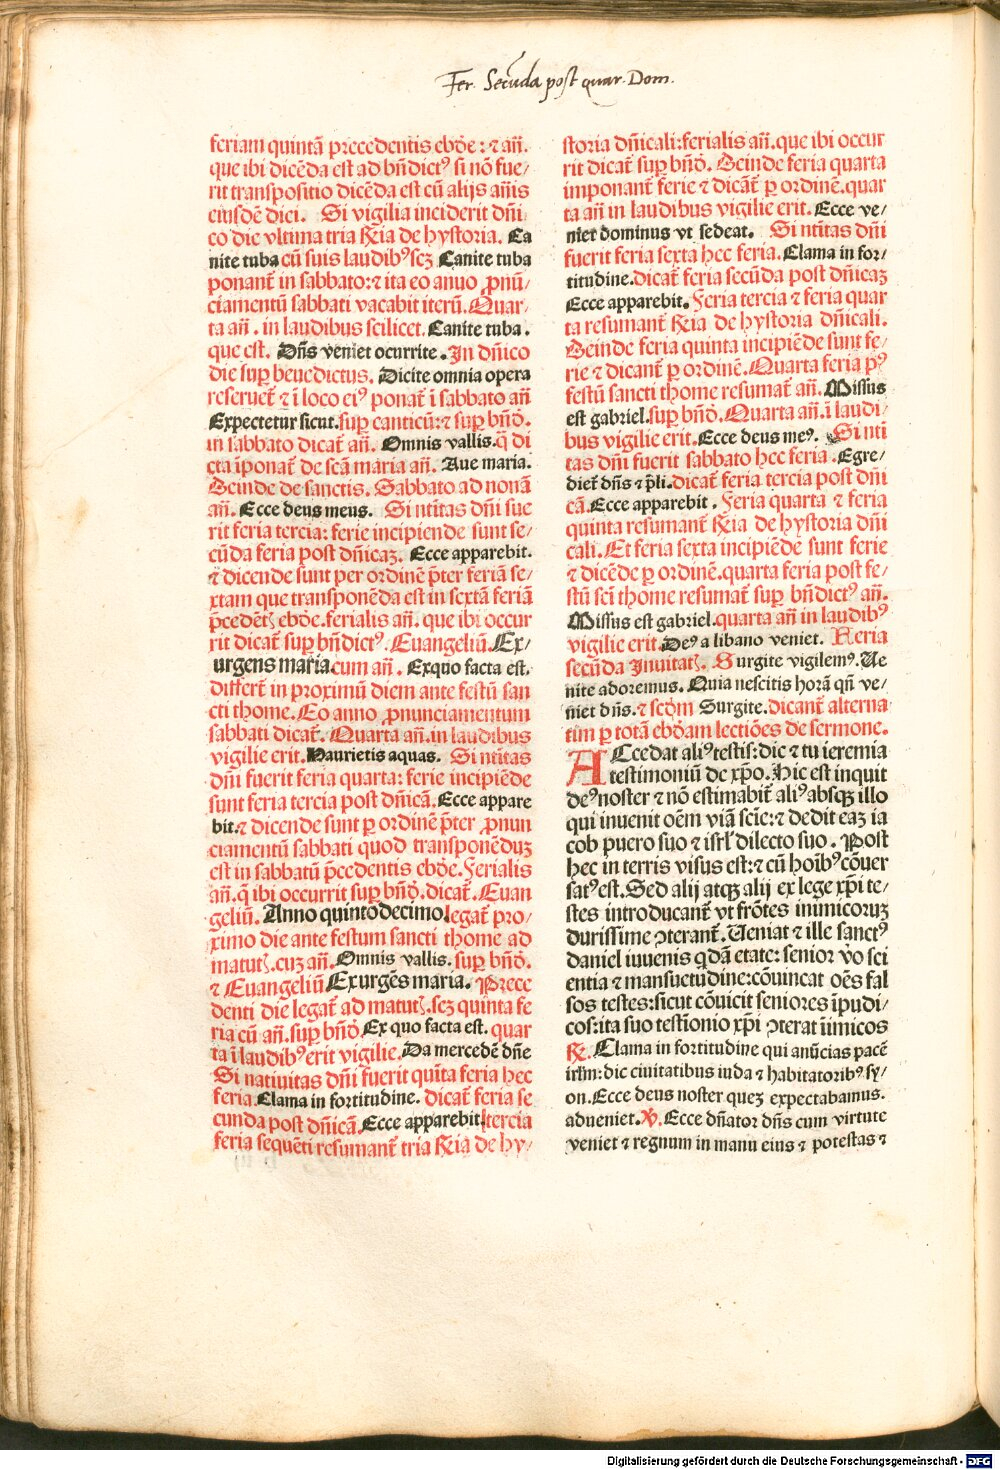 Fer. Secūda post quar. Dom.
feriam quintā precedentis ebdo̅e: ⁊ an̄.
que ibi dicēda est ad bn̄dictꝰ si nō fue⸗
rit transpositio dicēda est cū alijs an̄is
eiusdē diei. Si vigilia inciderit dn̄i
co die vltima tria R̄ia de hystoria. Ca
nite tuba cū suis laudibꝰ scꝫ Canite tuba
ponant̄ in sabbato: ⁊ ita eo anuo ꝓnū⸗
ciamentū sabbati vacabit iterū. Quar⸗
ta an̄. in laudibus scilicet. Canite tuba.
que est. Dn̄s veniet ocurrite. In dn̄ico
die suꝑ beuedictus. Dicite omnia opera
reseruet̄ ⁊ ī loco eiꝰ ponat̄ ī sabbato an̄
Expectetur sicut. suꝑ canticū: ⁊ suꝑ bn̄ō.
in sabbato dicat̄ an̄. Omnis vallis. q̄ di
cta īponat̄ de scā maria an̄. Aue maria.
Deinde de sanctis. Sabbato ad nonā
an̄. Ecce deus meus. Si ntītas dn̄i fue
rit feria tercia: ferie incipiende sunt se⸗
cūda feria post dn̄icaꝫ. Ecce apparebit.
⁊ dicende sunt per ordinē p̄ter feriā se⸗
xtam que transponēda est in sextā feriā
p̄cedētꝭ ebdo̅e. ferialis an̄. que ibi occur
rit dicat̄ suꝑ bn̄dictꝰ. Euangeliū. Ex⸗
urgens maria. cum an̄. Exquo facta est.
differt̄ in proximū diem ante festū san
cti thome. Eo anno ꝓnunciamentum
sabbati dicat̄. Quarta an̄. in laudibus
vigilie erit. Haurietis aquas. Si ntītas
dn̄i fuerit feria quarta: ferie incipiēde
sunt feria tercia post dn̄icā. Ecce appare
bit. ⁊ dicende sunt ꝑ ordinē p̄ter ꝓnun
ciamentū sabbati quod transponēduꝫ
est in sabbatū p̄cedentis ebdo̅e. Ferialis
an̄. q̄ ibi occurrit suꝑ bn̄ō. dicat̄. Euan
geliū. Anno quintodecimo. legat̄ pro⸗
ximo die ante festum sancti thome ad
matutꝭ. cuꝫ an̄. Omnis vallis. suꝑ bn̄ō.
⁊ Euangeliū Exurgēs maria. Prece
denti die legat̄ ad matutꝭ. scꝫ quinta fe
ria cū an̄. suꝑ bn̄ō Ex quo facta est. quar
ta ī laudibꝰ erit vigilie. Da mercedē dn̄e
Si natiuitas dn̄i fuerit quīta feria hec
feria. Clama in fortitudine. dicat̄ feria se
cunda post dn̄icā. Ecce apparebit. tercia
feria sequēti resumant̄ tria R̄ia de hy⸗
storia dn̄icali: ferialis an̄. que ibi occur
rit dicat̄ suꝑ bn̄ō. Deinde feria quarta
imponant̄ ferie ⁊ dicāt̄ ꝑ ordinē. quar
ta an̄ in laudibus vigilie erit. Ecce ve⸗
niet dominus vt sedeat. Si ntītas dn̄i
fuerit feria sexta hec feria. Clama in for⸗
titudine. dicat̄ feria secūda post dn̄icaꝫ
Ecce apparebit. Feria tercia ⁊ feria quar
ta resumant̄ R̄ia de hystoria dn̄icali.
Deinde feria quinta incipiēde sunt fe⸗
rie ⁊ dicant̄ ꝑ ordinē. Quarta feria pꝰ
festū sancti thome resumat̄ an̄. Missus
est gabriel. suꝑ bn̄ō. Quarta an̄. ī laudi⸗
bus vigilie erit. Ecce deus meꝰ. Si ntī
tas dn̄i fuerit sabbato hec feria. Egre⸗
diet̄ dn̄s ⁊ p̄li. dicat̄ feria tercia post dn̄i
cā. Ecce apparebit. Feria quarta ⁊ feria
quinta resumant̄ R̄ia de hystoria dn̄i
cali. Et feria sexta incipiēde sunt ferie
⁊ dicēde ꝑ ordinē. quarta feria post fe⸗
stū sci̅ thome resumat̄ suꝑ bn̄dictꝰ an̄.
Missus est gabriel. quarta an̄ in laudibꝰ
vigilie erit. Deꝰ a libano veniet. Feria
secūda Inuitatꝭ. Surgite vigilemꝰ. Ue
nite adoremus. Quia nescitis horā qn̄ ve⸗
niet dn̄s. ⁊ scd̄m Surgite. dicant̄ alterna
tim ꝑ totā ebdo̅am lectiōes de sermone.
ACcedat aliꝰ testis: dic ⁊ tu ieremia
testimoniū de xp̄o. Hic est inquit
deꝰ noster ⁊ nō estimabit̄ aliꝰ absqꝫ illo
qui inuenit oēm viā scīe: ⁊ dedit eaꝫ ia
cob puero suo ⁊ isrl̄ dilecto suo. Post
hec in terris visus est: ⁊ cū hoībꝰ cōuer
satꝰ est. Sed alij atqꝫ alij ex lege xp̄i te⸗
stes introducant̄ vt frōtes inimicoruꝫ
durissime ꝯterant̄. Ueniat ⁊ ille sanctꝰ
daniel iuuenis qdā etate: senior v̄o sci
entia ⁊ mansuetudine: cōuincat oēs fal
sos testes: sicut cōuicit seniores īpudi⸗
cos: ita suo testīonio xp̄i ꝯterat īimicos
R̄. Clama in fortitudine qui anūcias pacē
irlm̄: dic ciuitatibus iuda ⁊ habitatoribꝰ sy⸗
on. Ecce deus noster queꝫ expectabamus.
adueniet. V̄. Ecce dn̄ator dn̄s cum virtute
veniet ⁊ regnum in manu eius ⁊ potestas ⁊
Digitalisierung gefördert durch die Deutsche Forschungsgemeinschaft - DFG